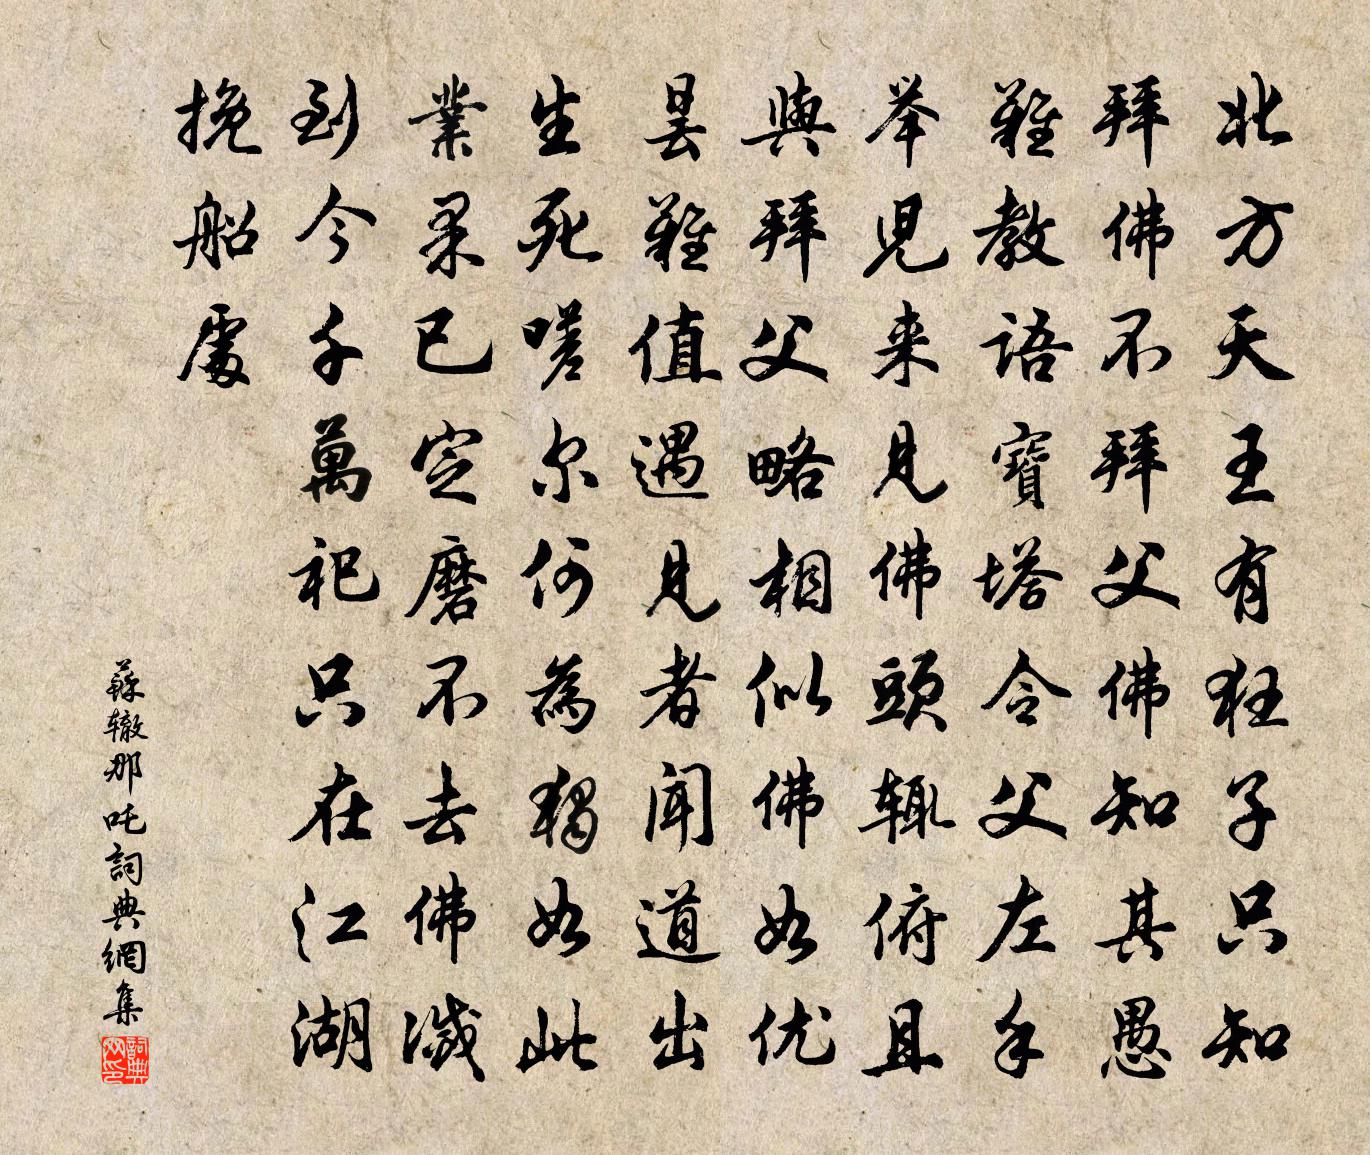 北方天王有狂子只知
拜佛不拜父佛知其愚
難教語寶塔令父左手
举児来見佛頭辄俯且
與拜父略相似佛如优
昙難值遇見者聞道出
生死嗟尔何為獨如此
業果已定磨不去佛滅
到今千萬祀只在江湖
挽船處
蘇辙那吒詞典網集
詞典
网印